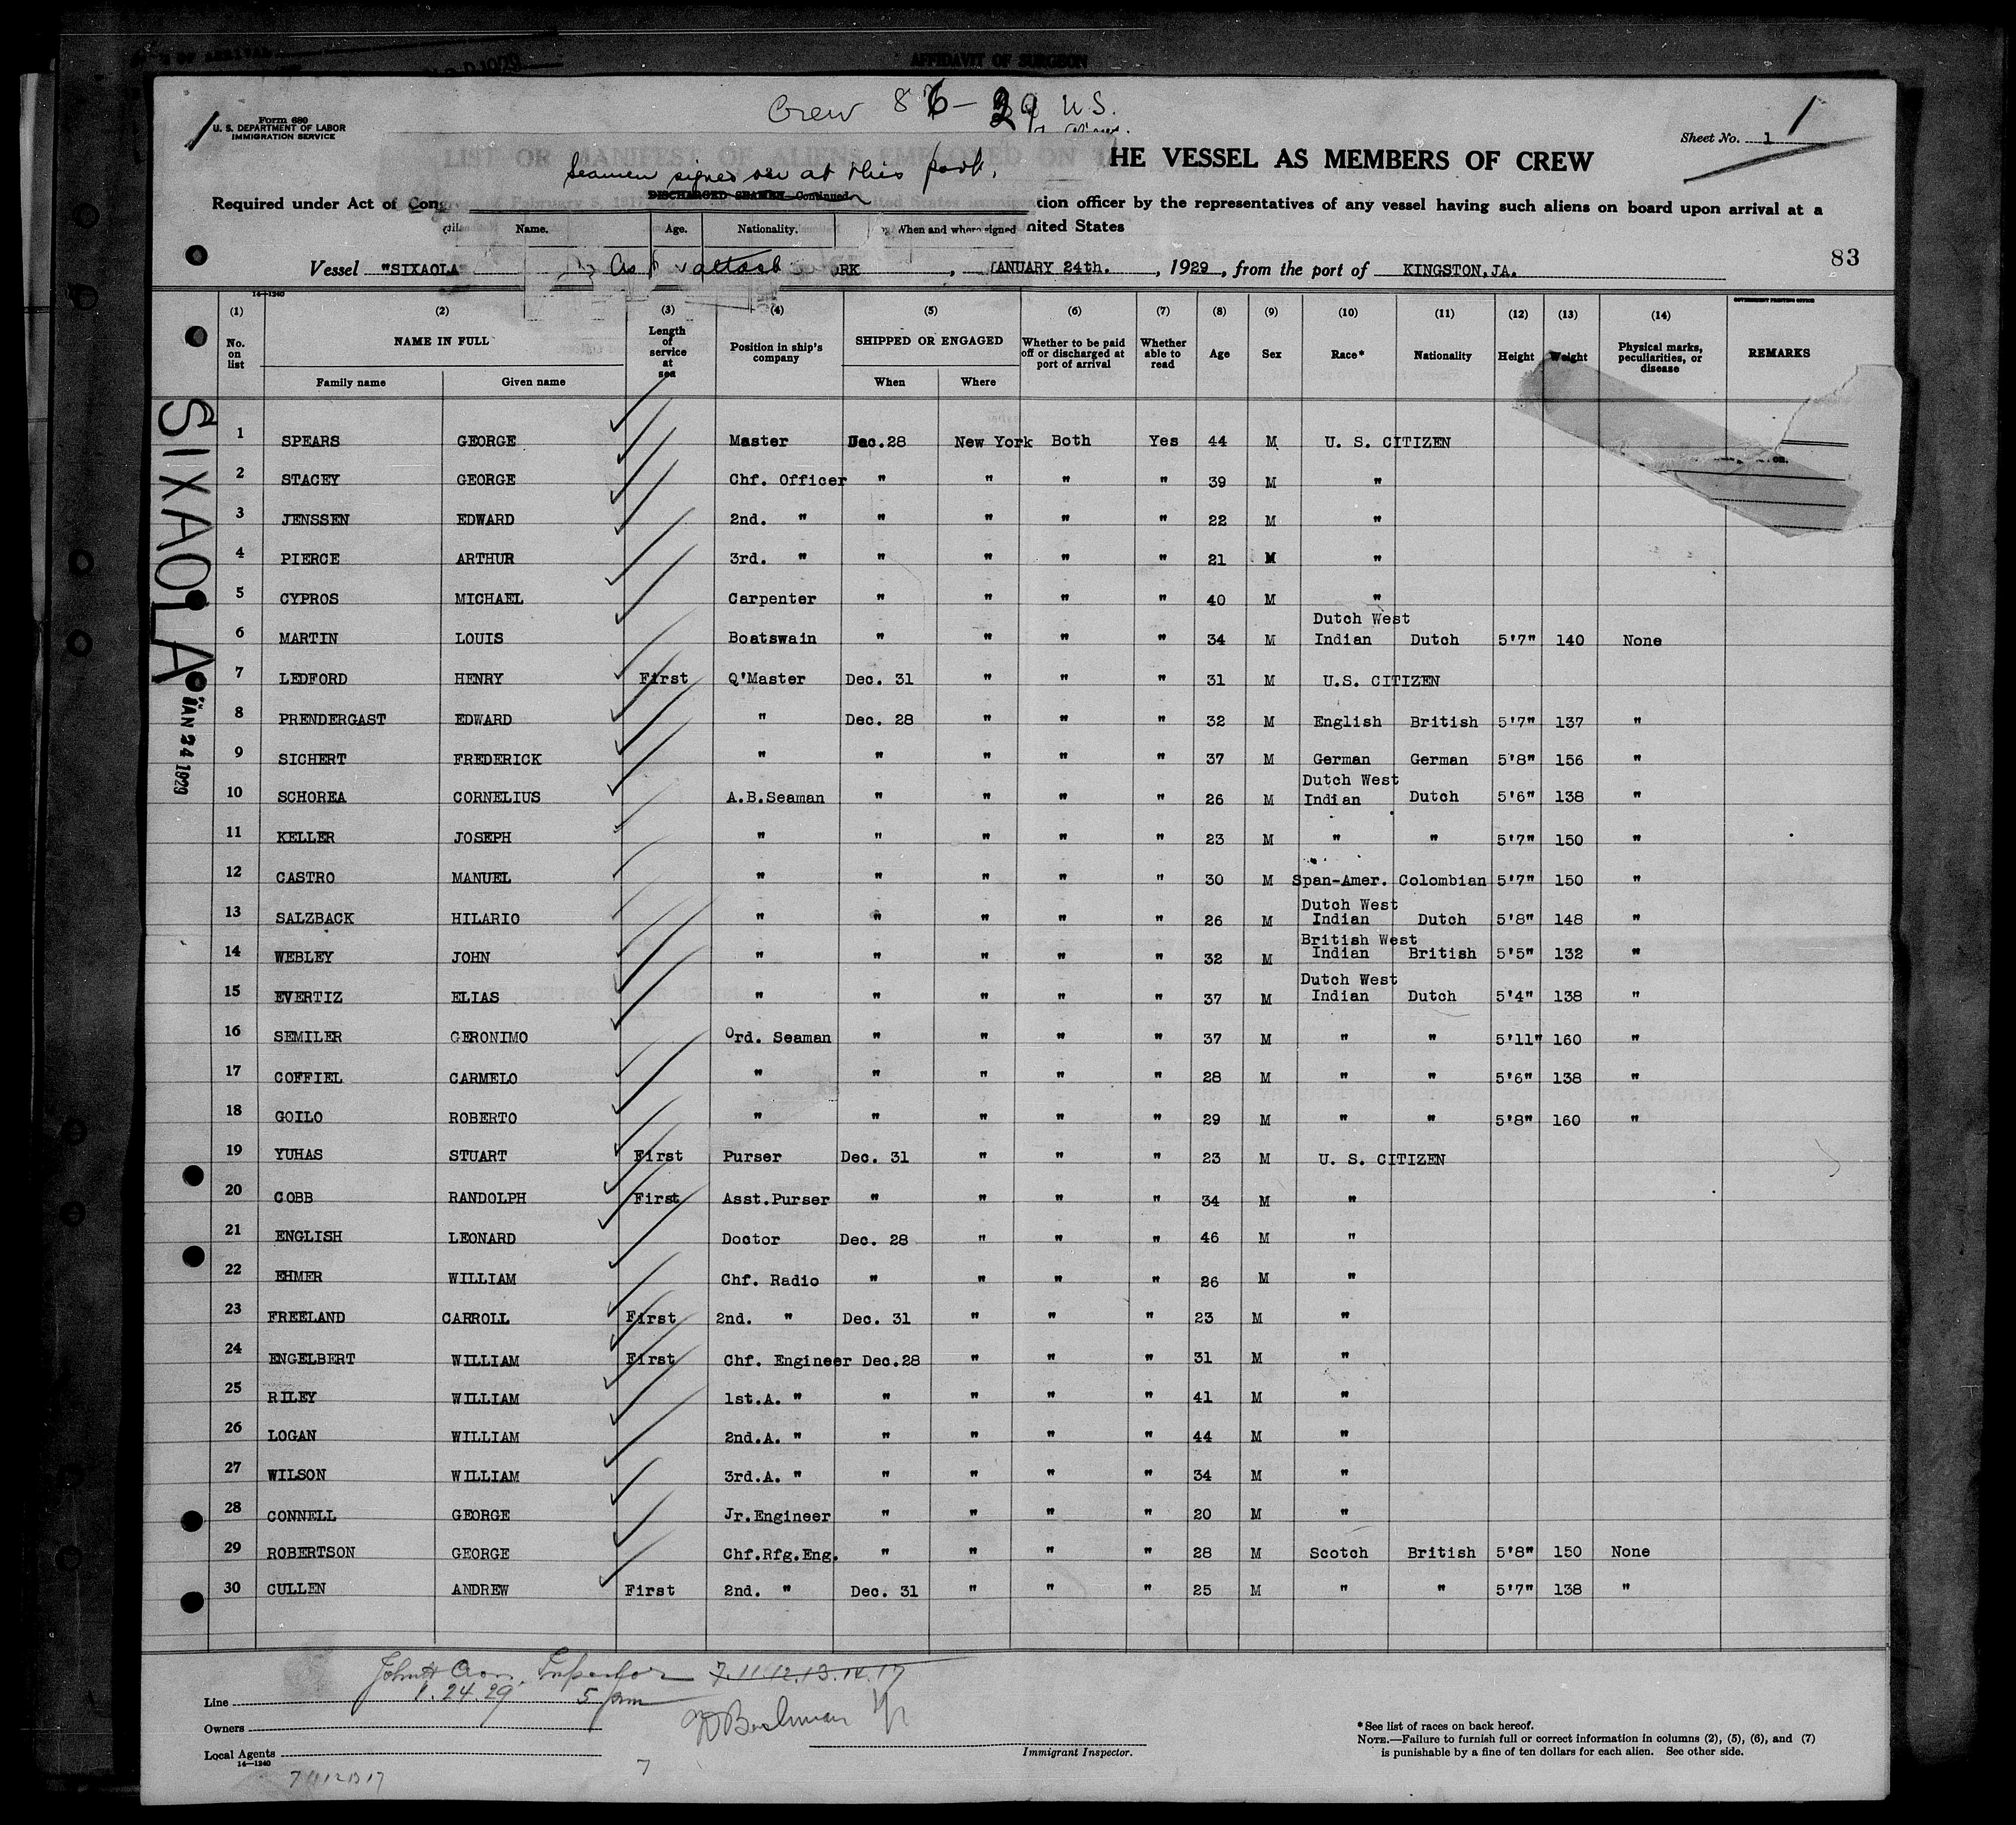 AFFIDAVIT OF SURGEON
Crew 86 - 29 U.S.
Form 680
U. S. DEPARTMENT OF LABOR
IMMIGRATION SERVICE
Sheet No. 1
LIST OR MANIFEST OF ALIENS EMPLOYED ON THE VESSEL AS MEMBERS OF CREW
Seamen signed on at this port.
DISCHARGED SEAMEN—Continued
Required under Act of Congress of February 5, 1917, United States immigration officer by the representatives of any vessel having such aliens on board upon arrival at a
United States
Name. Age. Nationality. When and where signed
83
Vessel "SIXAOLA" As attach ORK, JANUARY 24th., 1929, from the port of KINGSTON, JA.
14—1240
GOVERNMENT PRINTING OFFICE
(1) (2) (3) (4) (5) (6) (7) (8) (9) (10) (11) (12) (13) (14)
No. on list NAME IN FULL Length of service at sea Position in ship's company SHIPPED OR ENGAGED Whether to be paid off or discharged at port of arrival Whether able to read Age Sex Race* Nationality Height Weight Physical marks, peculiarities, or disease REMARKS
Family name Given name When Where
SIXAOLA
JAN 24 1929
1 SPEARS GEORGE Master Dec.28 New York Both Yes 44 M U. S. CITIZEN
2 STACEY GEORGE Chf. Officer " " " " 39 M "
3 JENSSEN EDWARD 2nd. " " " " " 22 M "
4 PIERCE ARTHUR 3rd. " " " " " 21 M "
5 CYPROS MICHAEL Carpenter " " " " 40 M "
6 MARTIN LOUIS Boatswain " " " " 34 M Dutch West Indian Dutch 5'7" 140 None
7 LEDFORD HENRY First Q'Master Dec. 31 " " " 31 M U.S. CITIZEN
8 PRENDERGAST EDWARD " Dec. 28 " " " 32 M English British 5'7" 137 "
9 SICHERT FREDERICK " " " " " 37 M German German 5'8" 156 "
10 SCHOREA CORNELIUS A.B.Seaman " " " " 26 M Dutch West Indian Dutch 5'6" 138 "
11 KELLER JOSEPH " " " " " 23 M " " 5'7" 150 "
12 CASTRO MANUEL " " " " " 30 M Span-Amer. Colombian 5'7" 150 "
13 SALZBACK HILARIO " " " " " 26 M Dutch West Indian Dutch 5'8" 148 "
14 WEBLEY JOHN " " " " " 32 M British West Indian British 5'5" 132 "
15 EVERTIZ ELIAS " " " " " 37 M Dutch West Indian Dutch 5'4" 138 "
16 SEMILER GERONIMO Ord. Seaman " " " " 37 M " " 5'11" 160 "
17 COFFIEL CARMELO " " " " " 28 M " " 5'6" 138 "
18 GOILO ROBERTO " " " " " 29 M " " 5'8" 160 "
19 YUHAS STUART First Purser Dec. 31 " " " 23 M U. S. CITIZEN
20 COBB RANDOLPH First Asst.Purser " " " " 34 M "
21 ENGLISH LEONARD Doctor Dec. 28 " " " 46 M "
22 EHMER WILLIAM Chf. Radio " " " " 26 M "
23 FREELAND CARROLL First 2nd. " Dec. 31 " " " 23 M "
24 ENGELBERT WILLIAM First Chf. Engineer Dec.28 " " " 31 M "
25 RILEY WILLIAM 1st.A. " " " " " 41 M "
26 LOGAN WILLIAM 2nd.A. " " " " " 44 M "
27 WILSON WILLIAM 3rd.A. " " " " " 34 M "
28 CONNELL GEORGE Jr.Engineer " " " " 20 M "
29 ROBERTSON GEORGE Chf.Rfg.Eng. " " " " 28 M Scotch British 5'8" 150 None
30 CULLEN ANDREW First 2nd. " Dec. 31 " " " 25 M " " 5'7" 138 "
John H Inspector 7.11.12.13.14.17
Line 1.24.29 5 pm
Owners
Local Agents
14—1240
Immigrant Inspector.
7 11 12 13 17
7
*See list of races on back hereof.
NOTE.—Failure to furnish full or correct information in columns (2), (5), (6), and (7)
is punishable by a fine of ten dollars for each alien. See other side.